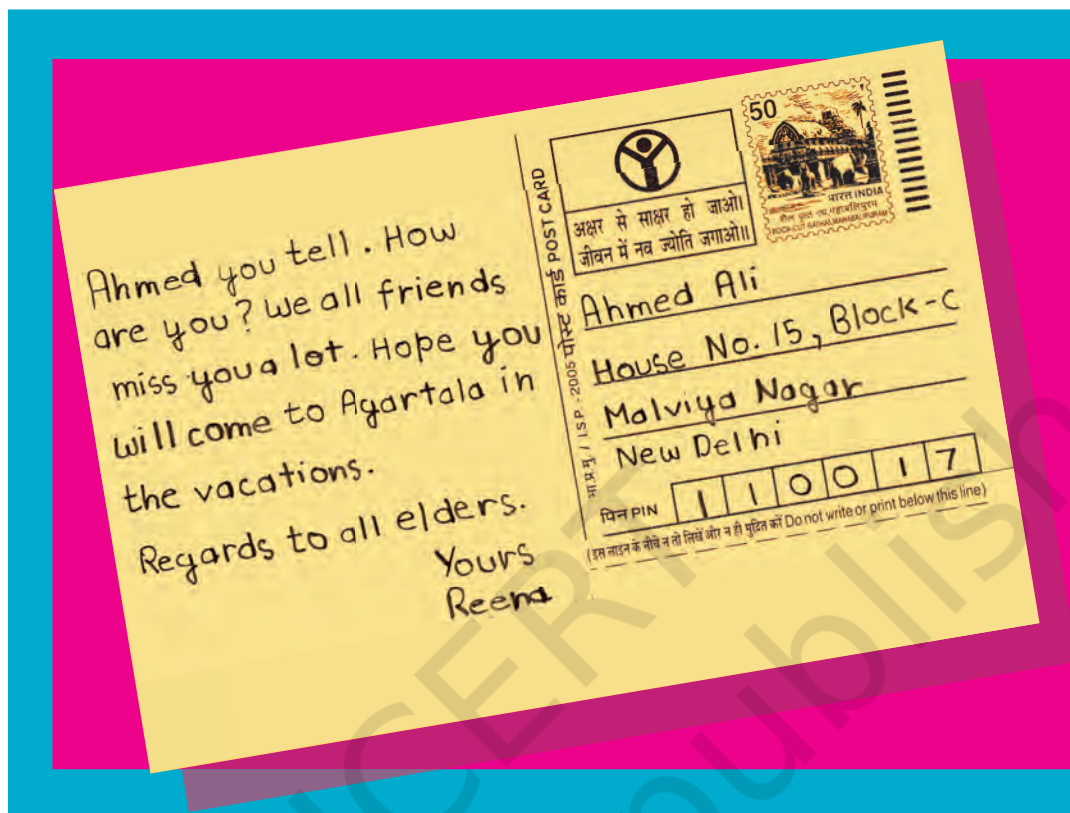 Ahmed you tell. How
are you? We all friends
miss you a lot. Hope you
will come to Agartala in
the vacations.
Regards to all elders.
Yours
Reena
भा.प्र.मु. / I.S.P - 2005 पोस्ट कार्ड POST CARD
अक्षर से साक्षर हो जाओ।
जीवन में नव ज्योति जगाओ॥
50
भारत INDIA
शैल कृत्त रथ, महाबलिपुरम
ROCK-CUT RATHAS, MAHABALIPURAM
Ahmed Ali
House No. 15, Block-C
Malviya Nagar
New Delhi
पिन PIN 110017
(इस लाइन के नीचे न तो लिखें और न ही मुद्रित करें Do not write or print below this line)
NCERT
publish